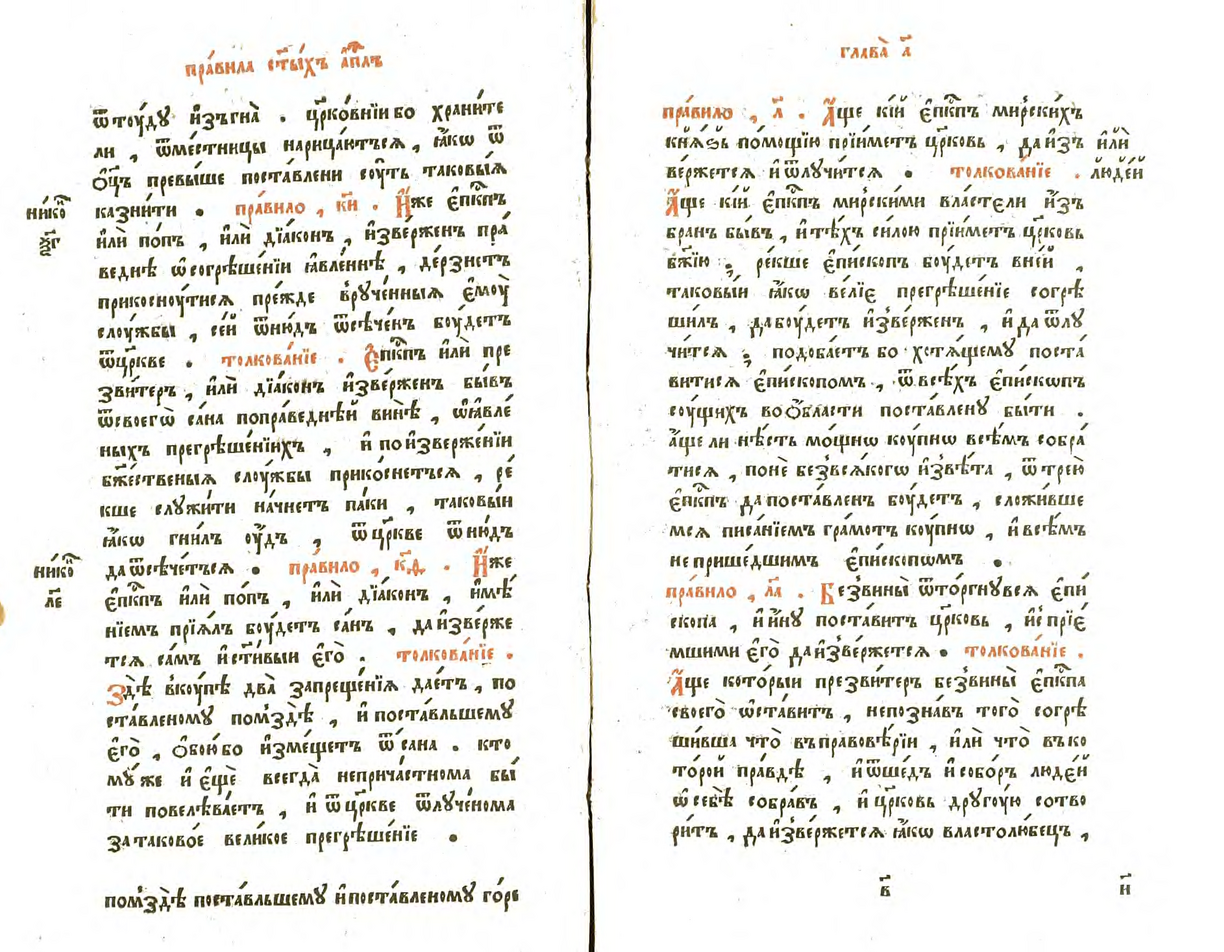 пра́вила ст҃ы́хъ а҆пⷭ҇лъ
ѿтоу́ду и҆зъгна̀ . цр҃ко́внїи бо храни́те
ли , ѿмѣстницы нарица́ютъся , ꙗ҆́кѡ ѿ
ѻ҆ц҃ъ превы́ше поста́влени соу́ть таковы́ѧ
казни́ти . пра́вило , к҃и . И҆́же є҆пⷭ҇кпъ
нико́ⷩ
ѯ҃г
и҆лѝ по́пъ , и҆лѝ дїа́конъ , и҆зве́рженъ пра́
веднѣ ѡ҆согрѣше́нїи ꙗ҆вле́ннѣ , де́рзнетъ
прикосноу́тися пре́жде врꙋче́нныѧ є҆моу̀
слоу́жбы , се́й ѿню́дъ ѿсѣ́ченъ боу́детъ
ѿцр҃кве . толкова́нїе . Є҆пⷭ҇кпъ и҆лѝ пре
зви́теръ , и҆лѝ дїа́конъ и҆зве́рженъ бы́въ
ѿсвоегѡ̀ са́на поправеднѣ́й винѣ̀ , ѡ҆ꙗ҆вле́
ныхъ прегрѣше́нїихъ , и҆ поизверже́нїи
бж҃е́ственыѧ слоу́жбы прикосне́тъся , ре́
кше слꙋжи́ти начне́тъ па́ки , таковы́и
ꙗ҆́кѡ гни́лъ оу҆́дъ , ѿцр҃кве ѿню́дъ
даѿсѣче́тъся . пра́вило , к҃ѳ . И҆́же
нико́ⷩ
л҃е
є҆пⷭ҇кпъ и҆лѝ по́пъ , и҆лѝ дїа́конъ , и҆мѣ́
нїемъ прїѧ́лъ боу́детъ са́нъ , даи҆зве́рже
тся са́мъ и҆ ст҃и́выи є҆го̀ . толкова́нїе .
Здѣ̀ вкоу́пѣ два̀ запреще́нїѧ дае́тъ , по
ста́вленомꙋ помздѣ̀ , и҆ поста́вльшемꙋ
є҆го̀ , ѻ҆бои́бо и҆зме́щетъ ѿсана . кто
мꙋ́ же и҆ є҆щѐ всегда̀ неприча́стнома бы́
ти повелѣва́етъ , и҆ ѿцр҃кве ѿлꙋче́нома
затаково́е вели́кое прегрѣше́нїе .
помздѣ̀ поста́вльшемꙋ и҆ поста́вленомꙋ го́ре
глава̀ а҃
пра́вило , л҃ . А҆́ще кі́й є҆пⷭ҇кпъ мирски́хъ
кня́ѕь по́мощїю прїи́метъ цр҃ковь , даи҆зъ
и҆лѝ
люде́й
ве́ржется и҆ ѿлꙋчи́тся . толкова́нїе .
А҆́ще кі́й є҆пⷭ҇кпъ ми́рскими властели и҆́зъ
бранъ бы́въ , и҆ тѣ́хъ си́лою прїи́метъ цр҃ковь
бж҃їю , ре́кше є҆пи́скопъ боу́детъ вне́й ,
таковы́и ꙗ҆́кѡ ве́лїе прегрѣше́нїе согрѣ
ши́лъ , дабоу́детъ и҆зве́рженъ , и҆ да ѿлꙋ
чи́тся , подоба́етъ бо хотѧ́щемꙋ поста́
витися є҆пи́скопомъ , ѿвсѣ́хъ є҆пи́скѡпъ
соу́щихъ воѻ҆́бласти поста́вленꙋ бы́ти .
а҆́ще ли нѣ́сть мо́щнѡ коу́пнѡ всѣ́мъ собра́
тися , понѐ безвся́когѡ и҆звѣ́та , ѿтрею̀
є҆пⷭ҇кпъ да поста́вленъ боу́детъ , сложи́вше
мся писа́нїемъ гра́мотъ коу́пнѡ , и҆ всѣ́мъ
не прише́дшимъ є҆пи́скопѡмъ .
пра́вило , л҃а . Безвины̀ ѿто́ргнꙋвся є҆пи
скопа , и҆ и҆́нꙋ поста́витъ цр҃ковь , и҆с прїе́
мшими є҆го̀ даи҆зве́ржется . толкова́нїе .
А҆́ще кото́рыи презви́теръ безвины̀ є҆пⷭ҇кпа
своего̀ ѡ҆ста́витъ , непозна́въ того̀ согрѣ
ши́вша что̀ въправовѣ́рїи , и҆лѝ что̀ въко
то́рой пра́вдѣ , и҆ ѿше́дъ и҆ собо́ръ люде́й
ѡ҆себѣ̀ собра́въ , и҆ цр҃ковь дрꙋгоу́ю сотво
ри́тъ , даи҆зве́ржется ꙗ҆́кѡ властолю́бецъ ,
в҃
и҃